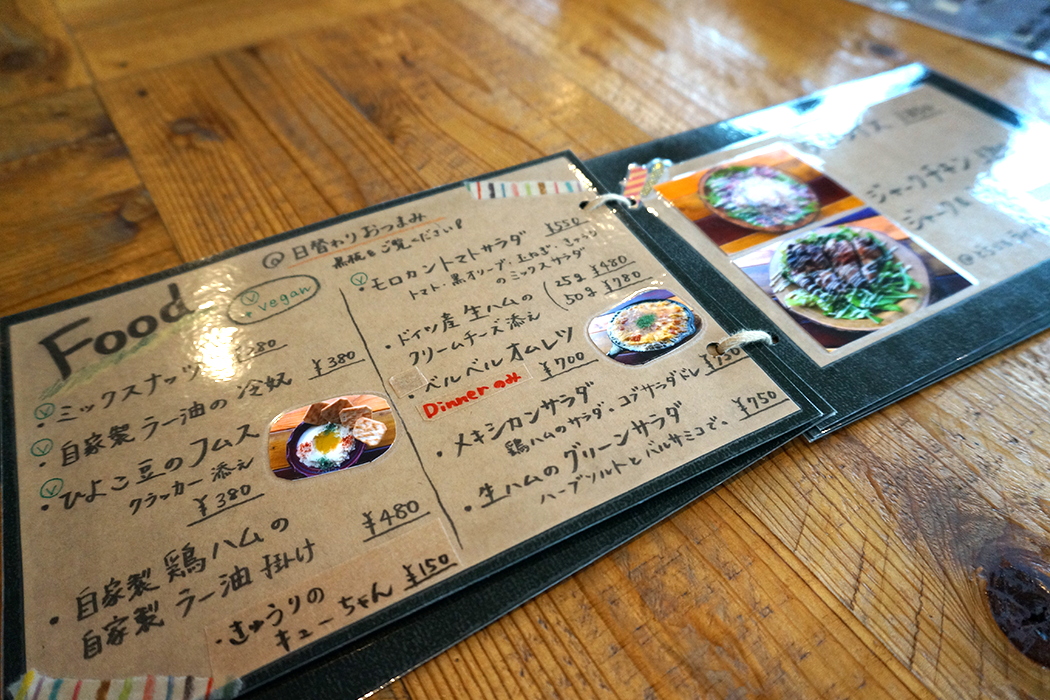 @日替わりおつまみ
黒板をご覧ください!
Food
Ⓥvegan
Ⓥ
・ミックスナッツ
¥380
Ⓥ
・自家製ラー油の冷奴
¥380
Ⓥ
・ひよこ豆のフムス
クラッカー添え
¥380
・自家製鶏ハムの
自家製ラー油掛け
¥480
・きゅうりの
キューちゃん
¥150
Ⓥ
・モロカントマトサラダ
¥550
トマト・黒オリーブ・玉ねぎ・きゅうり
のミックスサラダ
・ドイツ産生ハムの
クリームチーズ添え
25g ¥480
50g ¥780
・ベルベルオムレツ
Dinnerのみ
¥700
・メキシカンサラダ
¥750
鶏ハムのサラダ。コブサラダドレ
・生ハムのグリーンサラダ
¥750
ハーブソルトとバルサミコで。
ジャークチキン
ジャーク